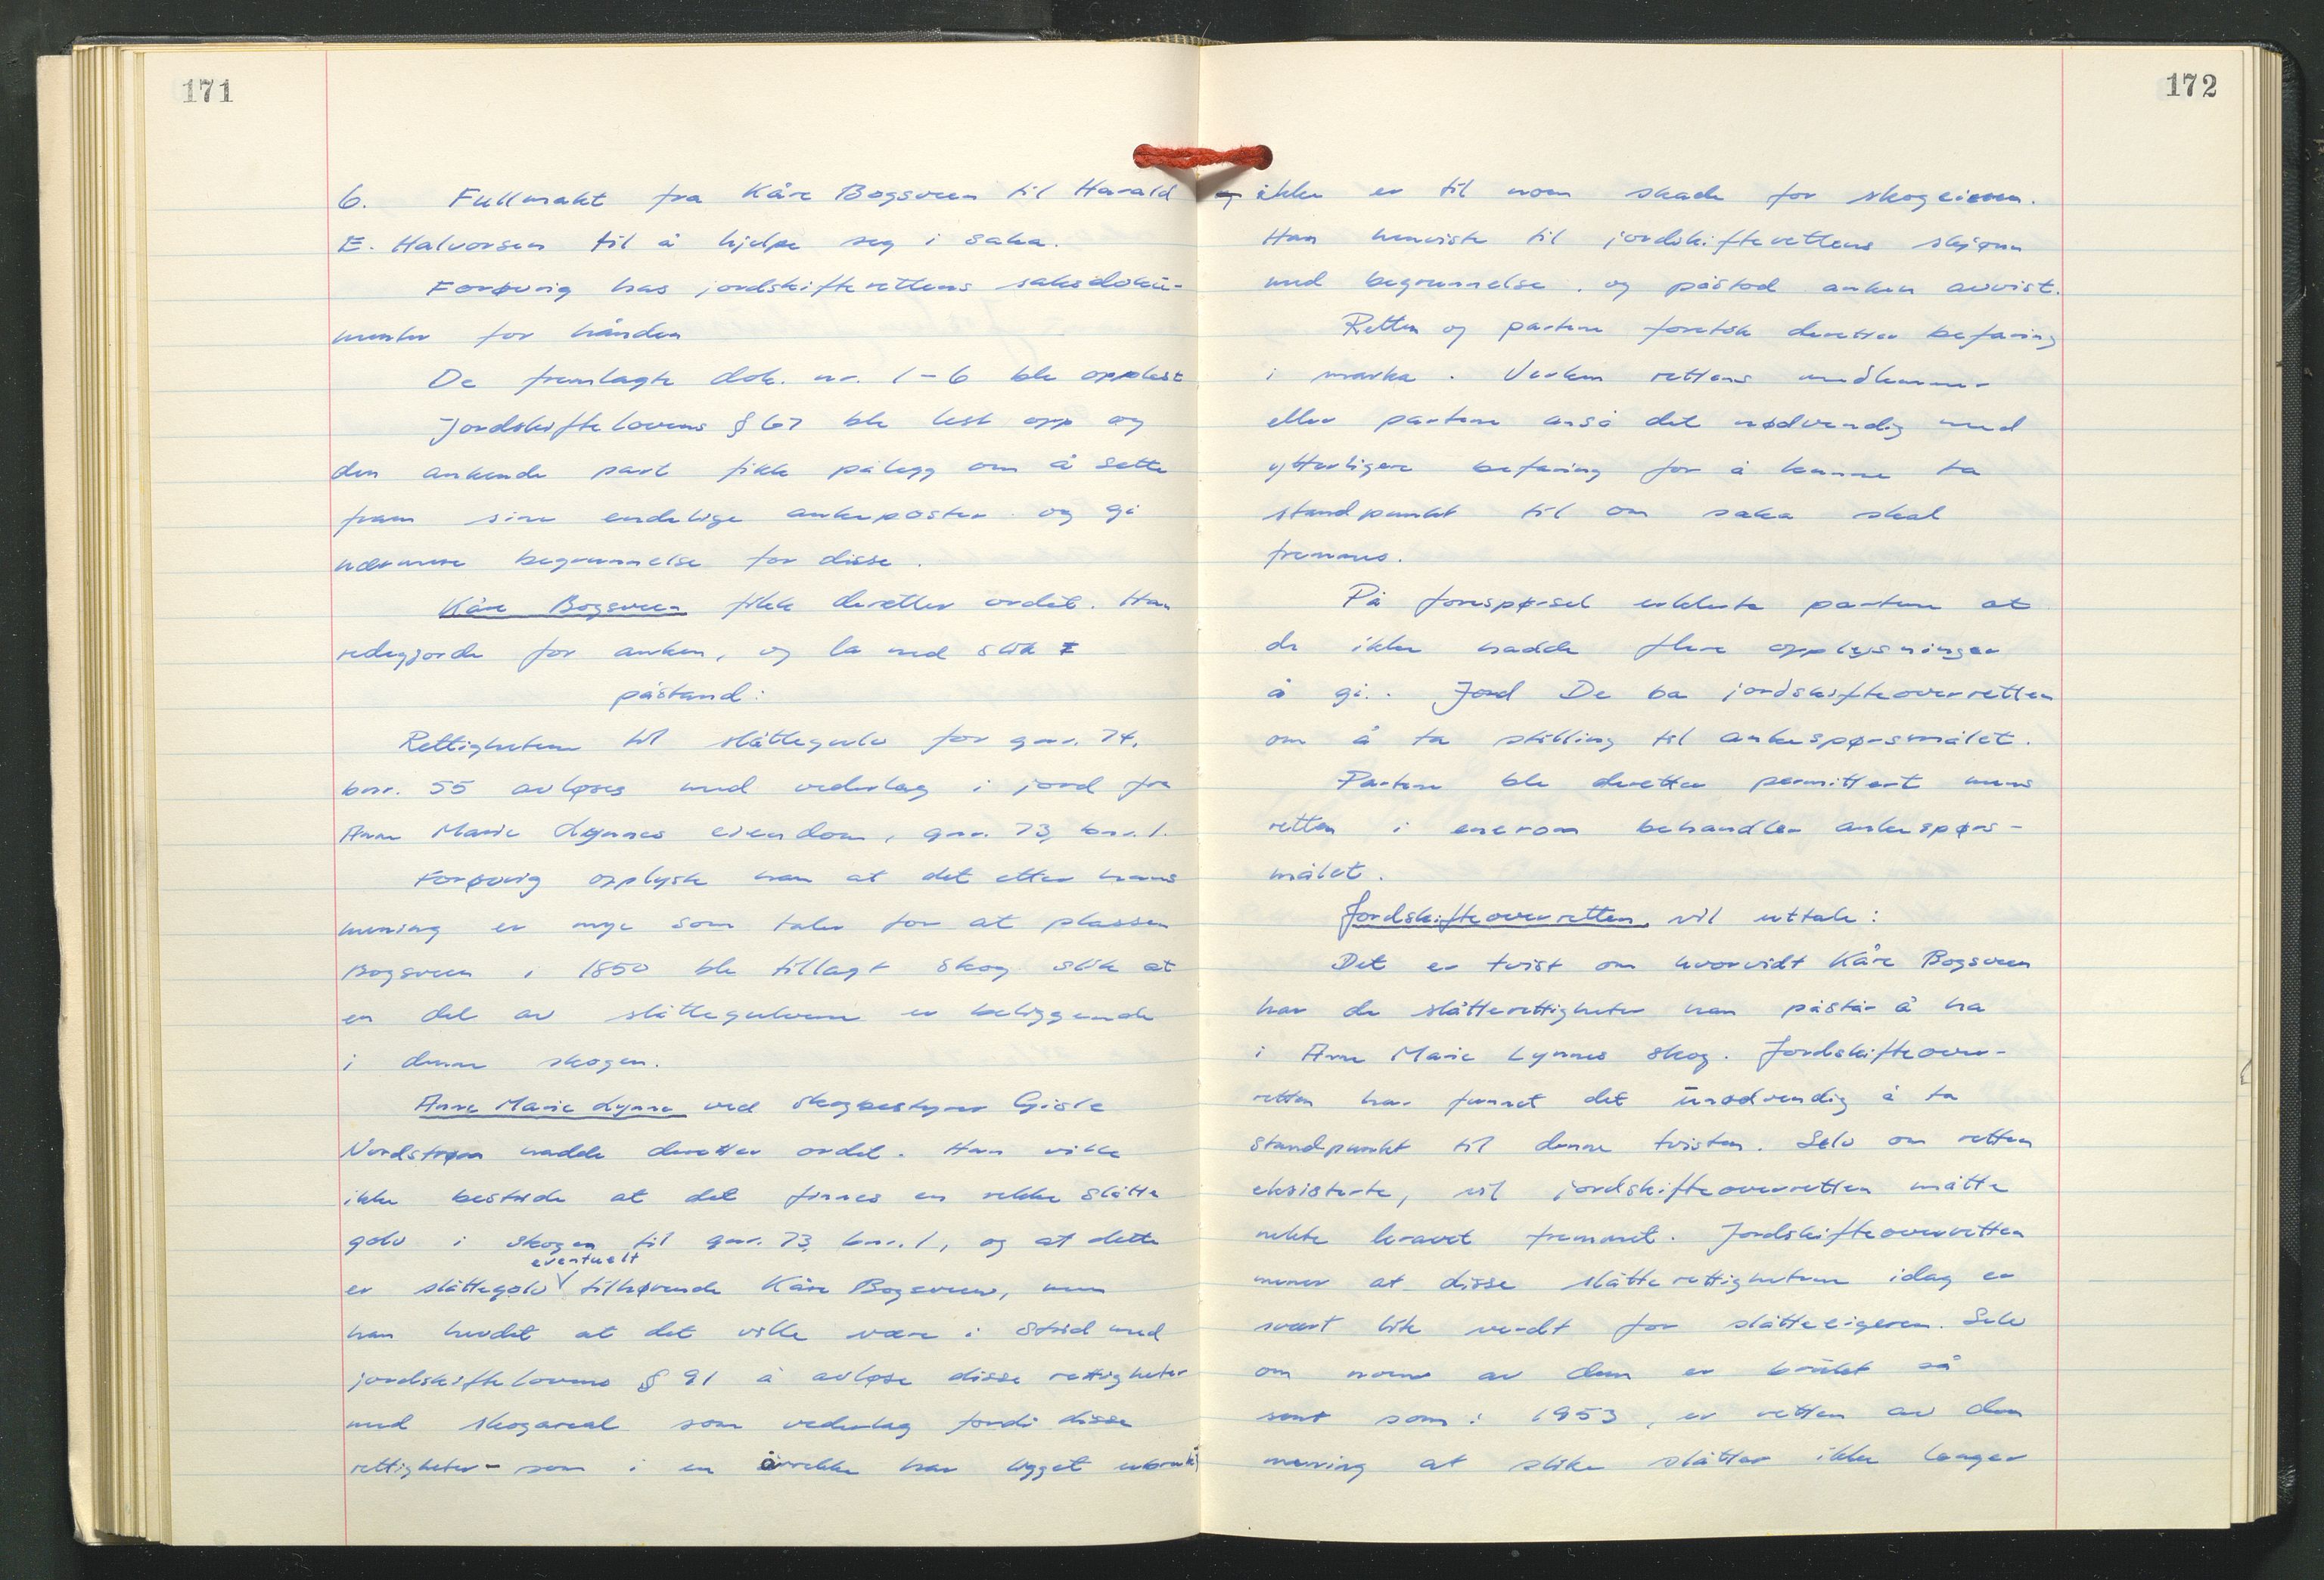 171
6. Fullmakt fra Kåre Bogsveen til Harald
E. Halvorsen til å hjelpe seg i saka.
Forøvrig has jordskifterettens saksdoku-
menter for hånden
De fremlagte dok. nr. 1-6 ble opplest
Jordskiftelovens § 67 ble lest opp og
den ankende part fikk pålegg om å sette
fram sine endelige ankeposter og gi
nærmere begrunnelse for disse.
Kåre Bogsveen fikk deretter ordet. Han
redegjorde for anken, og la ned slik
påstand:
Rettighetene til slåttegulv for gnr. 74,
bnr. 55 avløses med vederlag i jord fra
Anne Marie Lynnes eiendom, gnr. 73, bnr. 1.
Forøvrig opplyste han at det etter hans
mening er mye som taler for at plassen
Bogsveen i 1850 ble tillagt skog slik at
en del av slåttegulvene er beliggende
i denne skogen.
Anne Marie Lynne ved skogbestyrer Gisle
Nordstrøm hadde deretter ordet. Han ville
ikke bestride at det finnes en rekke slåtte
golv i skogen til gnr. 73, bnr. 1, og at dette
er slåttegolv eventuelt tilhørende Kåre Bogsveen, men
han hevdet at det ville være i strid med
jordskiftelovens § 91 å avløse disse rettigheter
med skogareal som vederlag fordi disse
rettigheter - som i en årrekke har ligget ubrukt
172
og ikke er til noen skade for skogeieren.
Han henviste til jordskifterettens skjønn
med begrunnelse, og påstod anken avvist.
Retten og partene foretok deretter befaring
i marka. Verken rettens medlemmer
eller partene anså det nødvendig med
ytterligere befaring for å kunne ta
standpunkt til om saka skal
fremmes.
På forespørsel erklærte partene at
de ikke hadde flere opplysninger
å gi. Jord De ba jordskifteoverretten
om å ta stilling til ankespørsmålet.
Partene ble deretter permittert mens
retten i enerom behandler ankespørs-
målet.
Jordskifteoverretten vil uttale:
Det er tvist om hvorvidt Kåre Bogsveen
har de slåtterettigheter han påstår å ha
i Anne Marie Lynnes skog. Jordskifteover-
retten har funnet det unødvendig å ta
standpunkt til denne tvisten. Selv om retten
eksisterte, vil jordskifteoverretten måtte
nekte kravet fremmet. Jordskifteoverretten
mener at disse slåtterettighetene idag er
svært lite verdt for slåtteeigeren. Selv
om noen av dem er brukt så
sent som i 1953, er retten av den
mening at slike slåtter ikke lenger